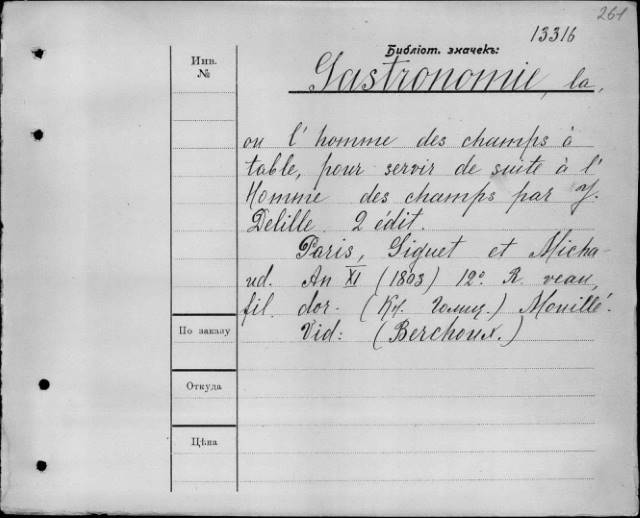 261
13316
Библіот. значекъ:
Инв.
№
Gastronomie, la,
ou l'homme des champs à
table, pour servir de suite à l'
Homme des champs par J.
Delille. 2 édit.
Paris, Giguet et Micha-
ud. An XI (1803) 12º. R. veau,
fil. dor. (Кн. Голиц.) Mouillé.
Vid: (Berchoux.)
По заказу
Откуда
Цѣна